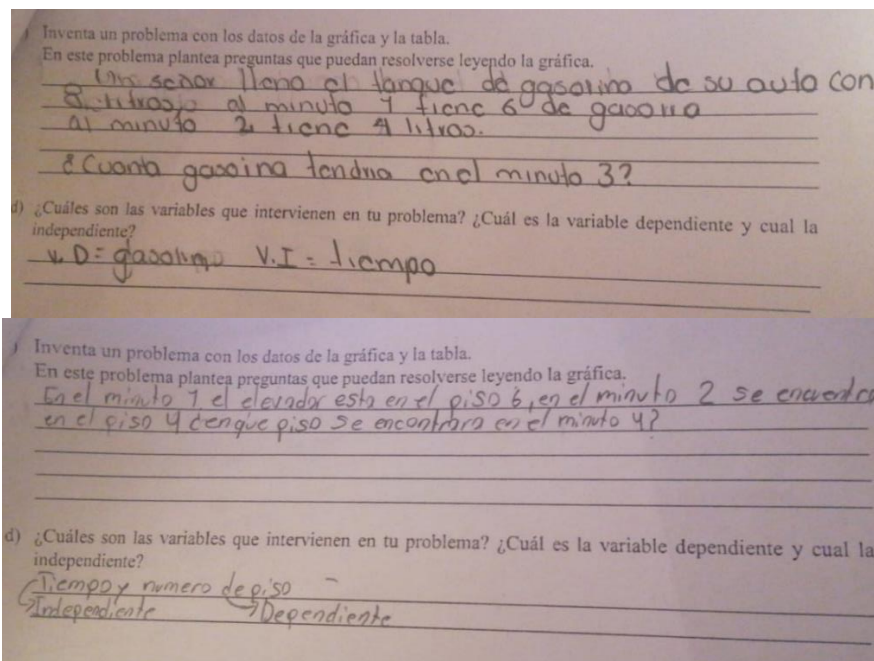 Inventa un problema con los datos de la gráfica y la tabla.
En este problema plantea preguntas que puedan resolverse leyendo la gráfica.
Un señor lleno el tanque de gasolina de su auto con
8 litros al minuto 1 tiene 6 de gasolia
al minuto 2 tiene 4 litros.
¿Cuanta gasoina tendria en el minuto 3?
d) ¿Cuáles son las variables que intervienen en tu problema? ¿Cuál es la variable dependiente y cual la
independiente?
V. D= gasolina V.I = tiempo
Inventa un problema con los datos de la gráfica y la tabla.
En este problema plantea preguntas que puedan resolverse leyendo la gráfica.
En el minuto 1 el elevador esta en el piso 6, en el minuto 2 se encuentra
en el piso 4 ¿en que piso se encontrara en el minuto 4?
d) ¿Cuáles son las variables que intervienen en tu problema? ¿Cuál es la variable dependiente y cual la
independiente?
Tiempo y numero de piso
Independiente Dependiente